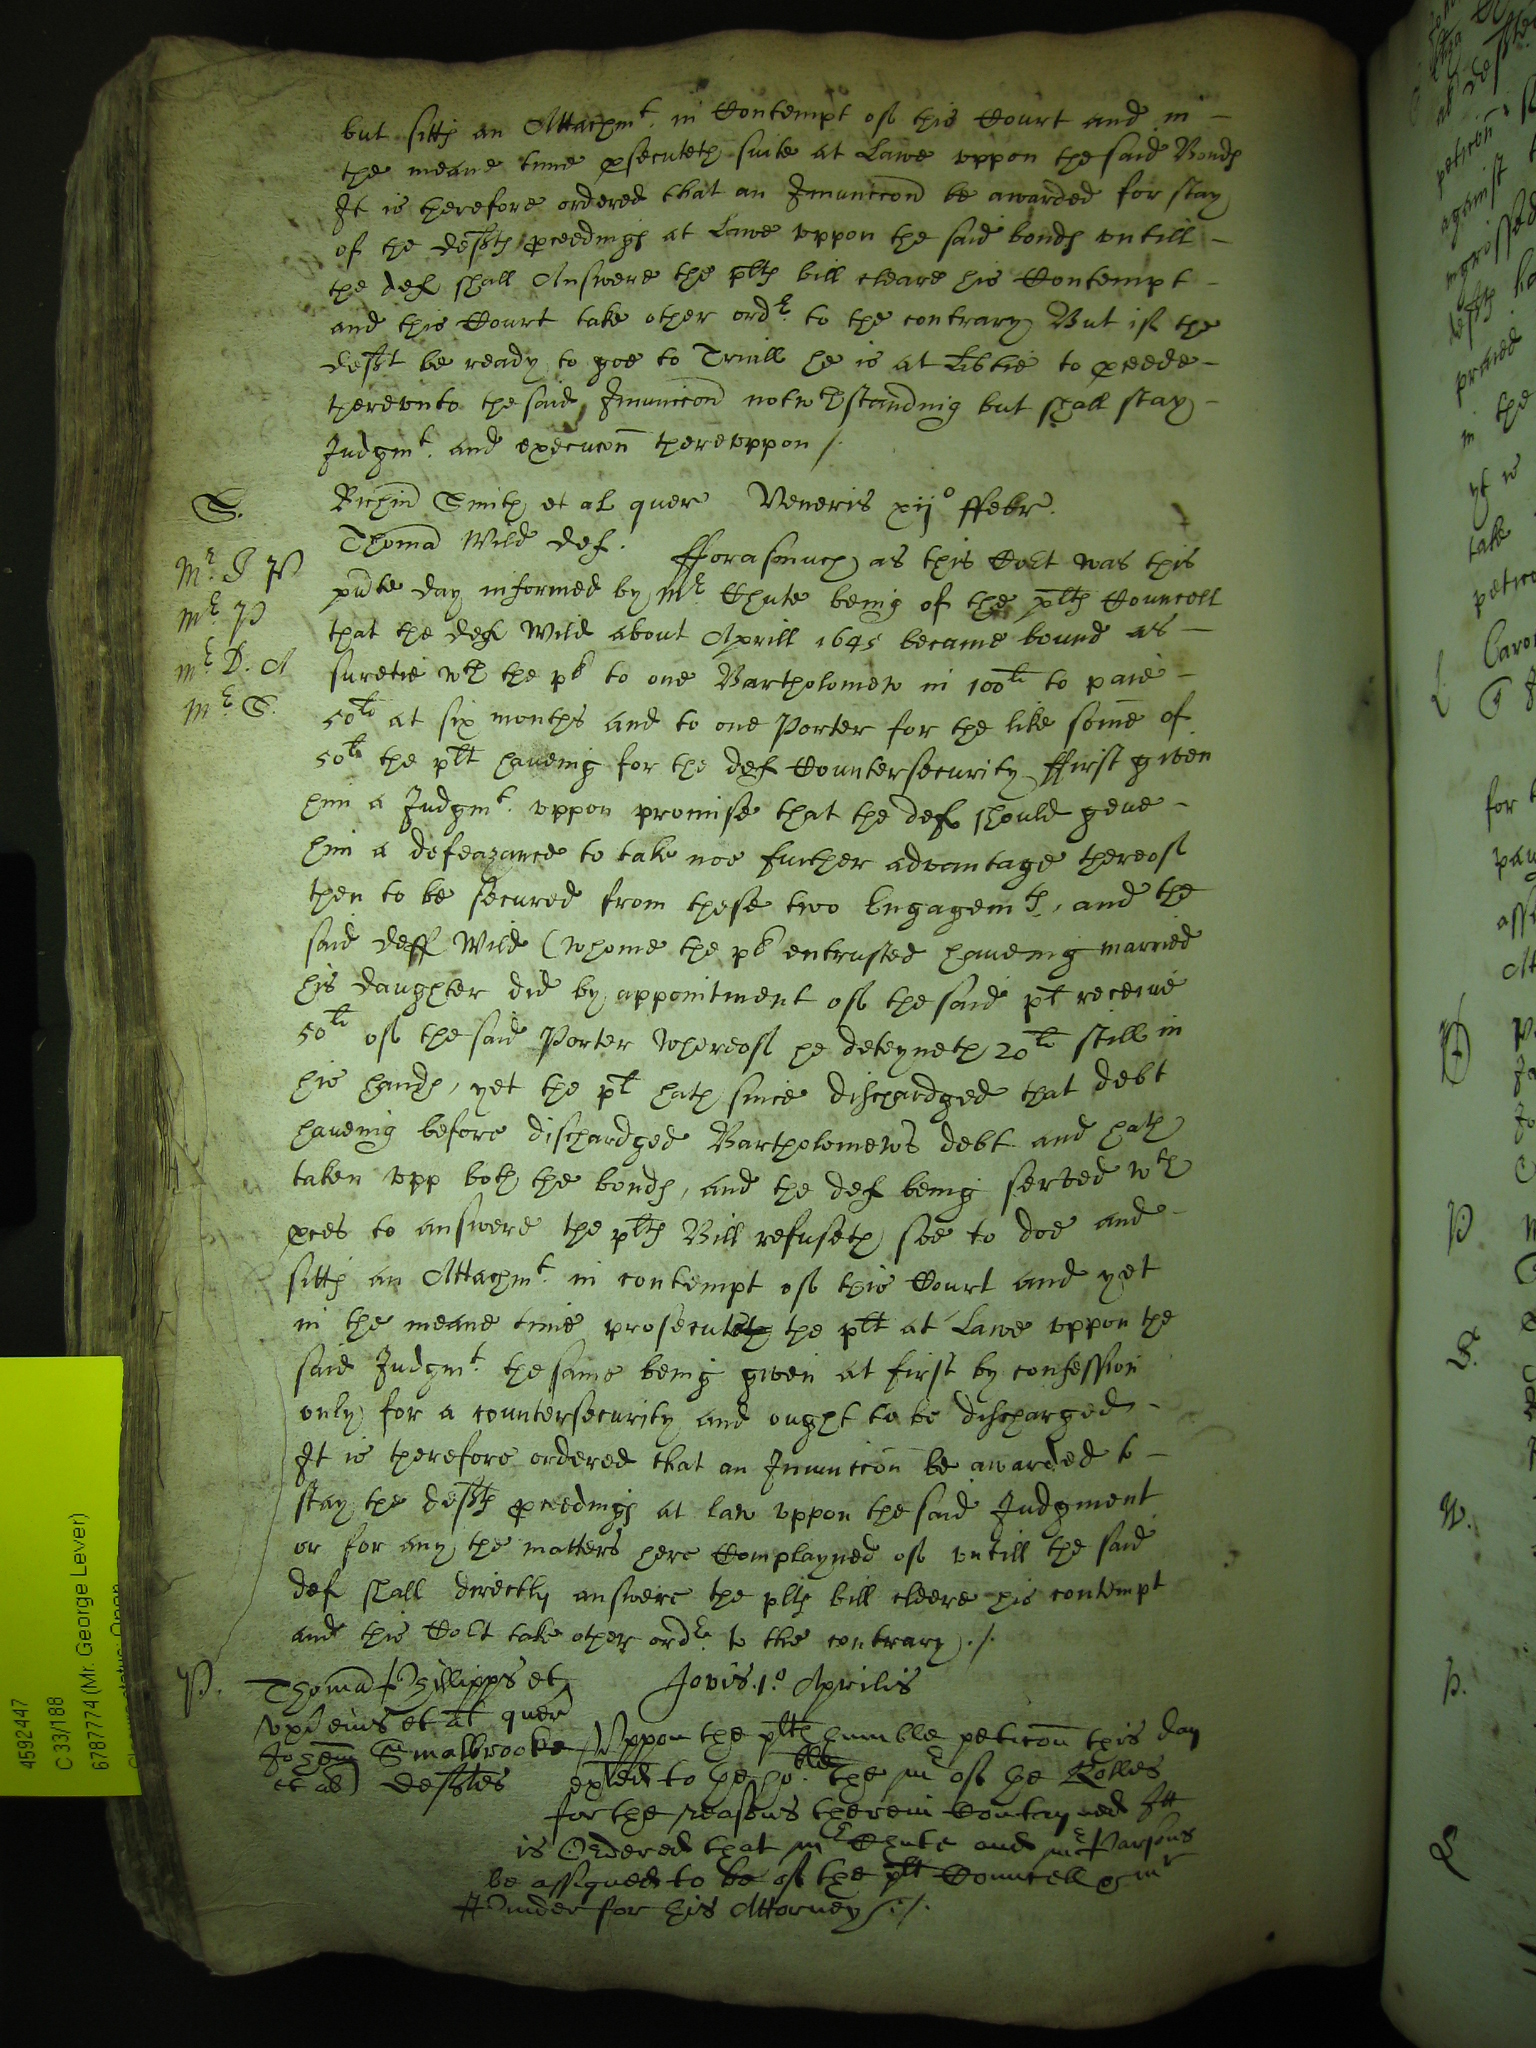 but sitts an Attachmt. in Contempt of this Court and in
the meane time psecuteth suite at Lawe vppon the said Bonds
It is therefore ordered that an Iniunccon be awarded for stay
of the defts pceedings at Lawe vppon the said bonds vntill
the def shall Answere the plts bill cleare his Contempt
and this Court take other ordr. to the contrary But if the
deft be ready to goe to Triall he is at Libtie to pceede
therevnto the said Iniunccon notwthstanding but shall stay
Iudgmt. and execucon therevppon /.
S. Richard Smith et al quer Veneris xijo ffebr.
Thomas Wild def. fforasmuch as this Cort was this
Mr. I P
pnte day informed by Mr Chute being of the plts Councell
mr P
that the def Wild about Aprill 1645 became bound as
mr D. A
suretie wth the pt to one Bartholomew in 100li to paie
mr. S.
50li at six months and to one Porter for the like some of
50li the plt haueing for the def Countersecurity ffirst given
him a Iudgmt. vppon promise that the def should geue
him a defeazance to take noe further advantage thereof
then to be secured from these two Engagemts, and the
said deff Wild (whome the pt entrusted haueing married
his daughter did by appointment of the said pt receive
50li of the said Porter whereof he deteyneth 20li still in
his hands, yet the pt hath since dischardged that debt
haueing before dischardged Bartholomews debt and hath
taken vpp both the bonds, and the def being served wth
pces to answere the plts Bill refuseth soe to doe and
sitts an Attachmt. in contempt of this Court and yet
in the meane time prosecuteth the plt at Lawe vppon the
said Iudgmt. the same being given at first by confession
only for a countersecurity and ought to be discharged
It is therefore ordered that an Iniunccon be awarded to
stay the defts pceedings at law vppon the said Iudgment
or for any the matters here Complayned of vntill the said
def shall directly answere the plts bill cleere his contempt
and this Cort take other ordr. to the contrary ./.
P. Thomas Phillipps et Jovis .1.o Aprilis
vx eius et al quer
Smalbrooke Vppon the plts humble peticon this day
et al defts to the hoble. the mr of the Rolles
for the reasons therein Contayned Itt
is Ordered that mr Chute and mr Parsons
be assigned to be of the plt Councell & mr
for his Attorney /./.
4592447
C 33/188
6787774 (Mr. George Lever)